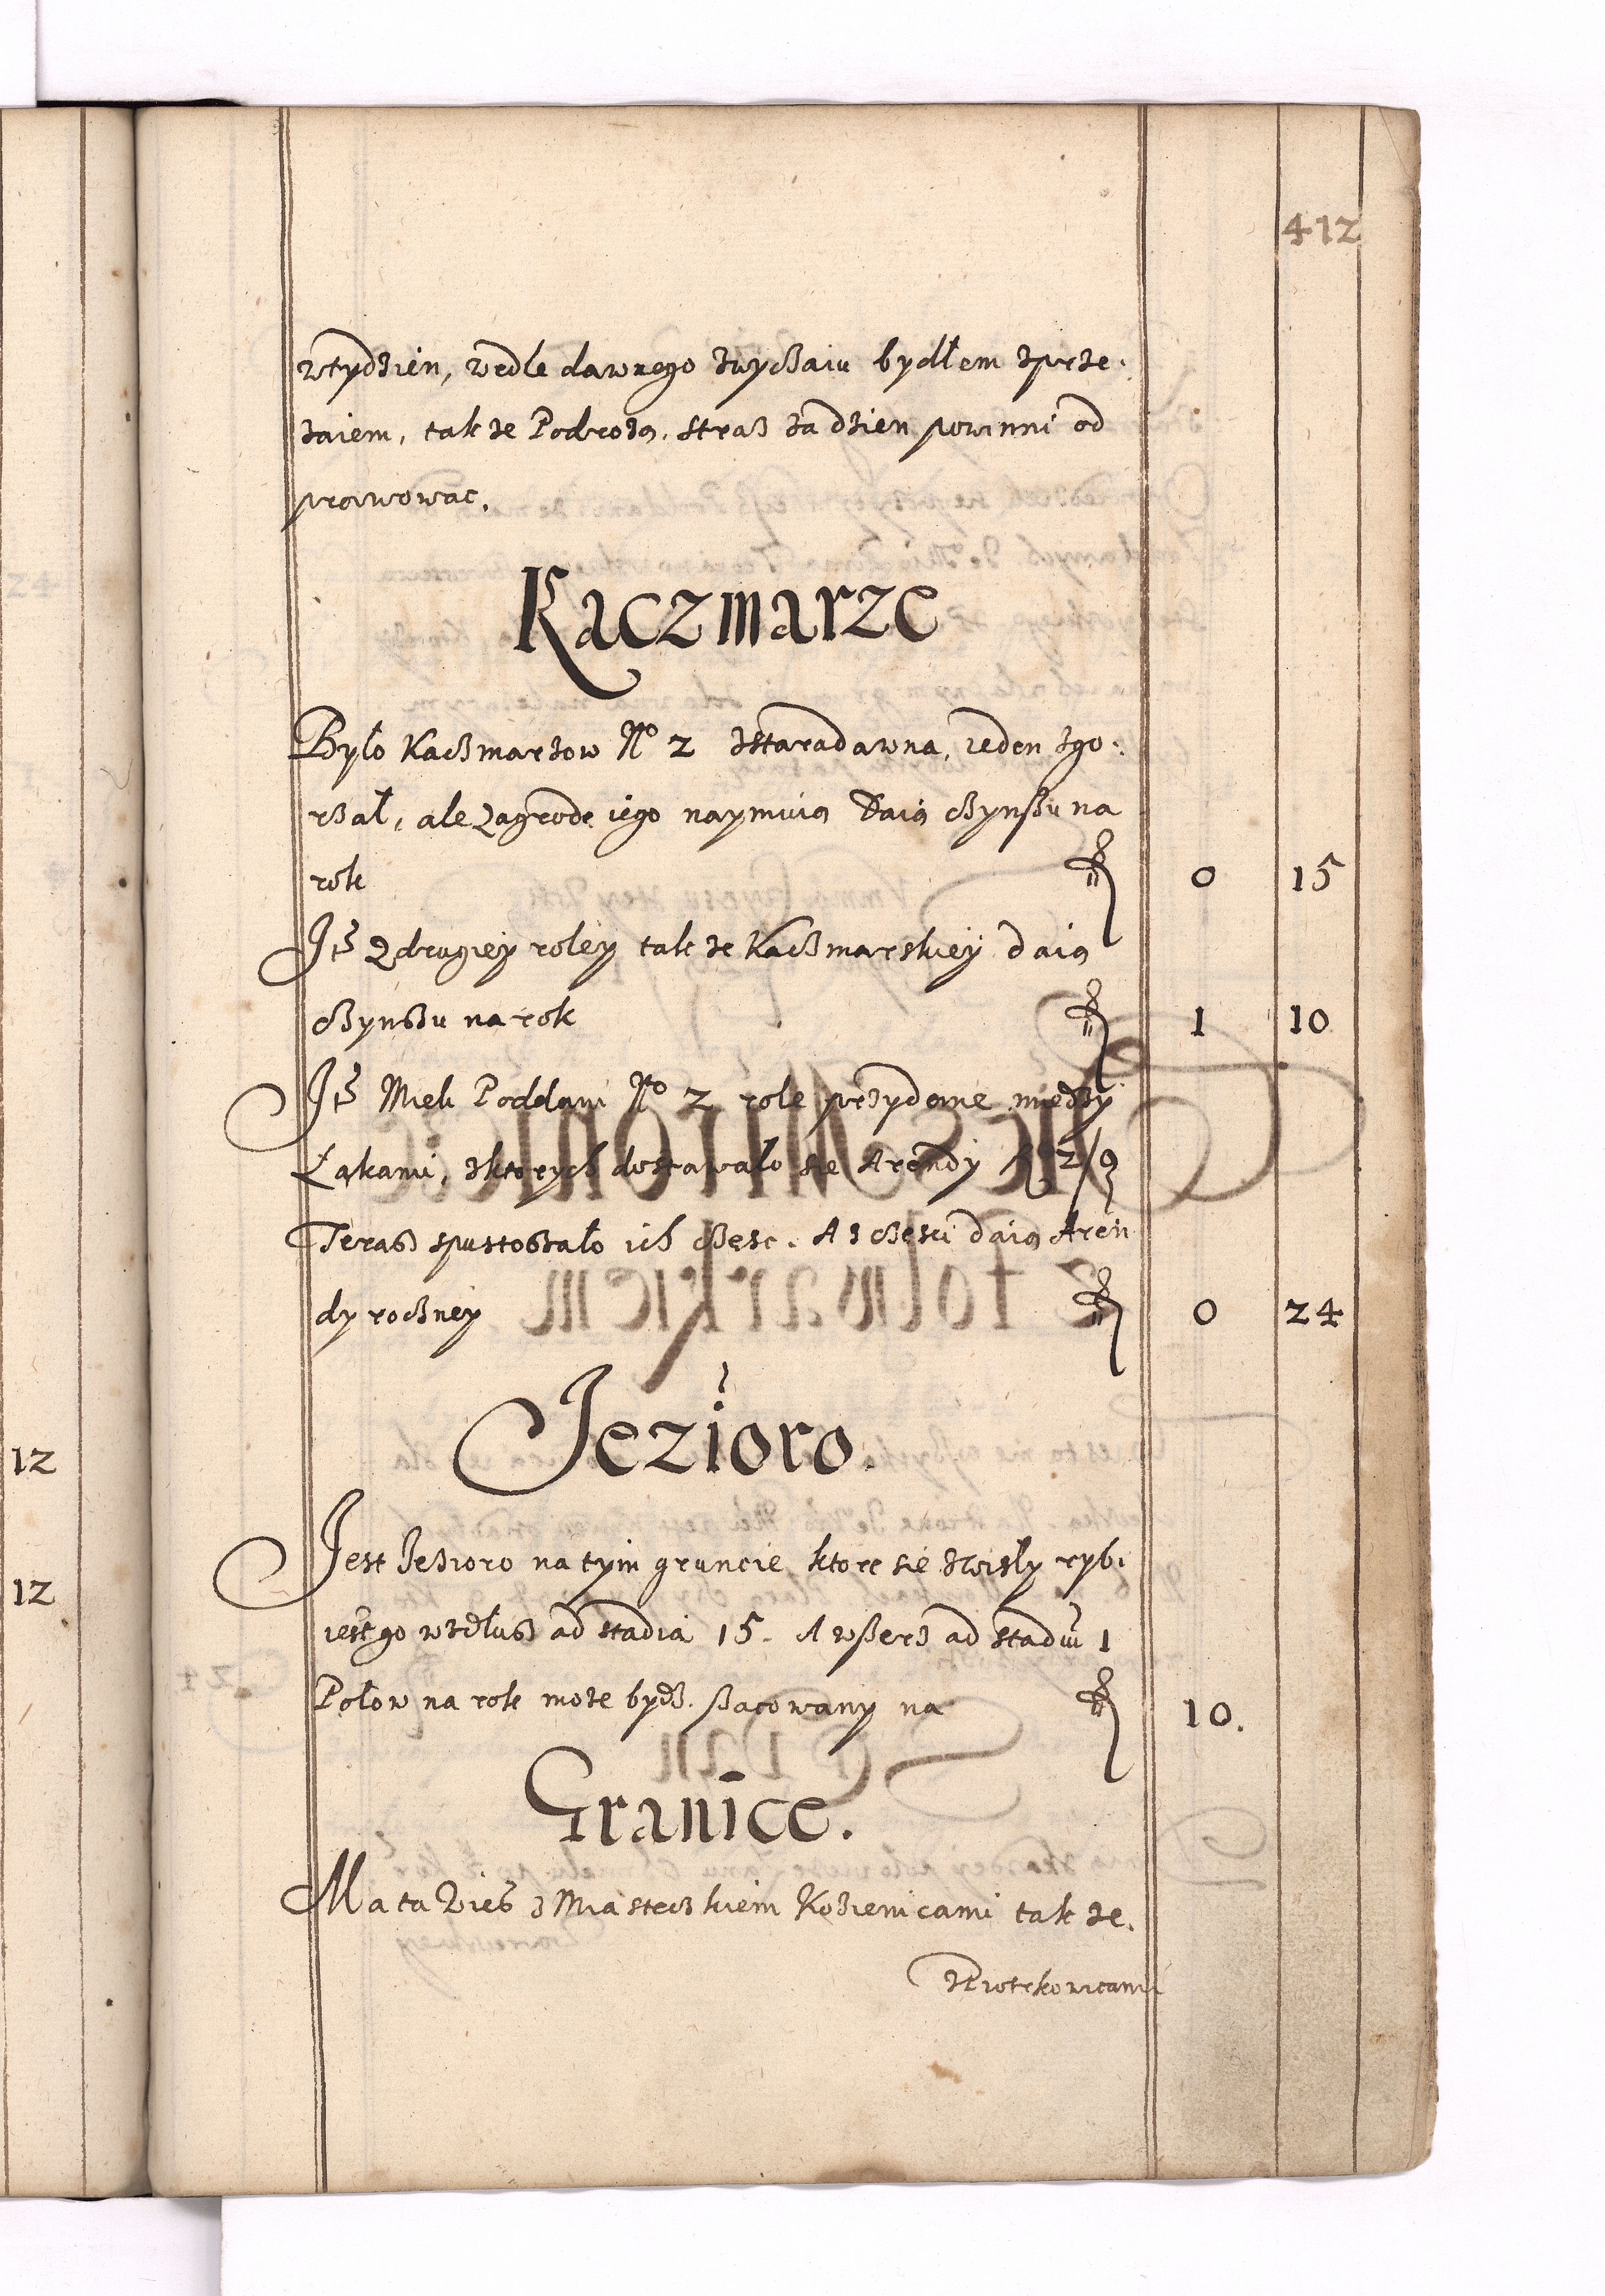 412
wtydzien, wedle dawnego zwyczaiu bydłem zprze.
zaiem, takze Podrozą, straz za dzien powinni od
prawowac.
Kaczmarze
Było Kaczmarzow No 2 zstaradawna, ieden zgo.
rzał, ale Zagrode iego naymuią Daią czynszu na
rok 0 15
Jts Z drugiey roley takze Kaczmarskiey daią
czynszu na rok 1 10
Jts Mieli Poddani No 2 role przydane między
Łąkami, zktorych dostawało sie Arendy 2/9
Teraz spustoszało ich część. A z częsci daią Aren
dy roczney 0 24
Jezioro.
Jest Jezioro na tym gruncie ktore sie zwisły rybi
iest go wzdłusz ad stadia 15. A wszerz ad stadiu 1
Połow na rok moze bydz szacowany na 10.
Granice.
Ma ta Wieś z Miasteczkiem Kozienicami takze.
zPiotrkowicami
12
12